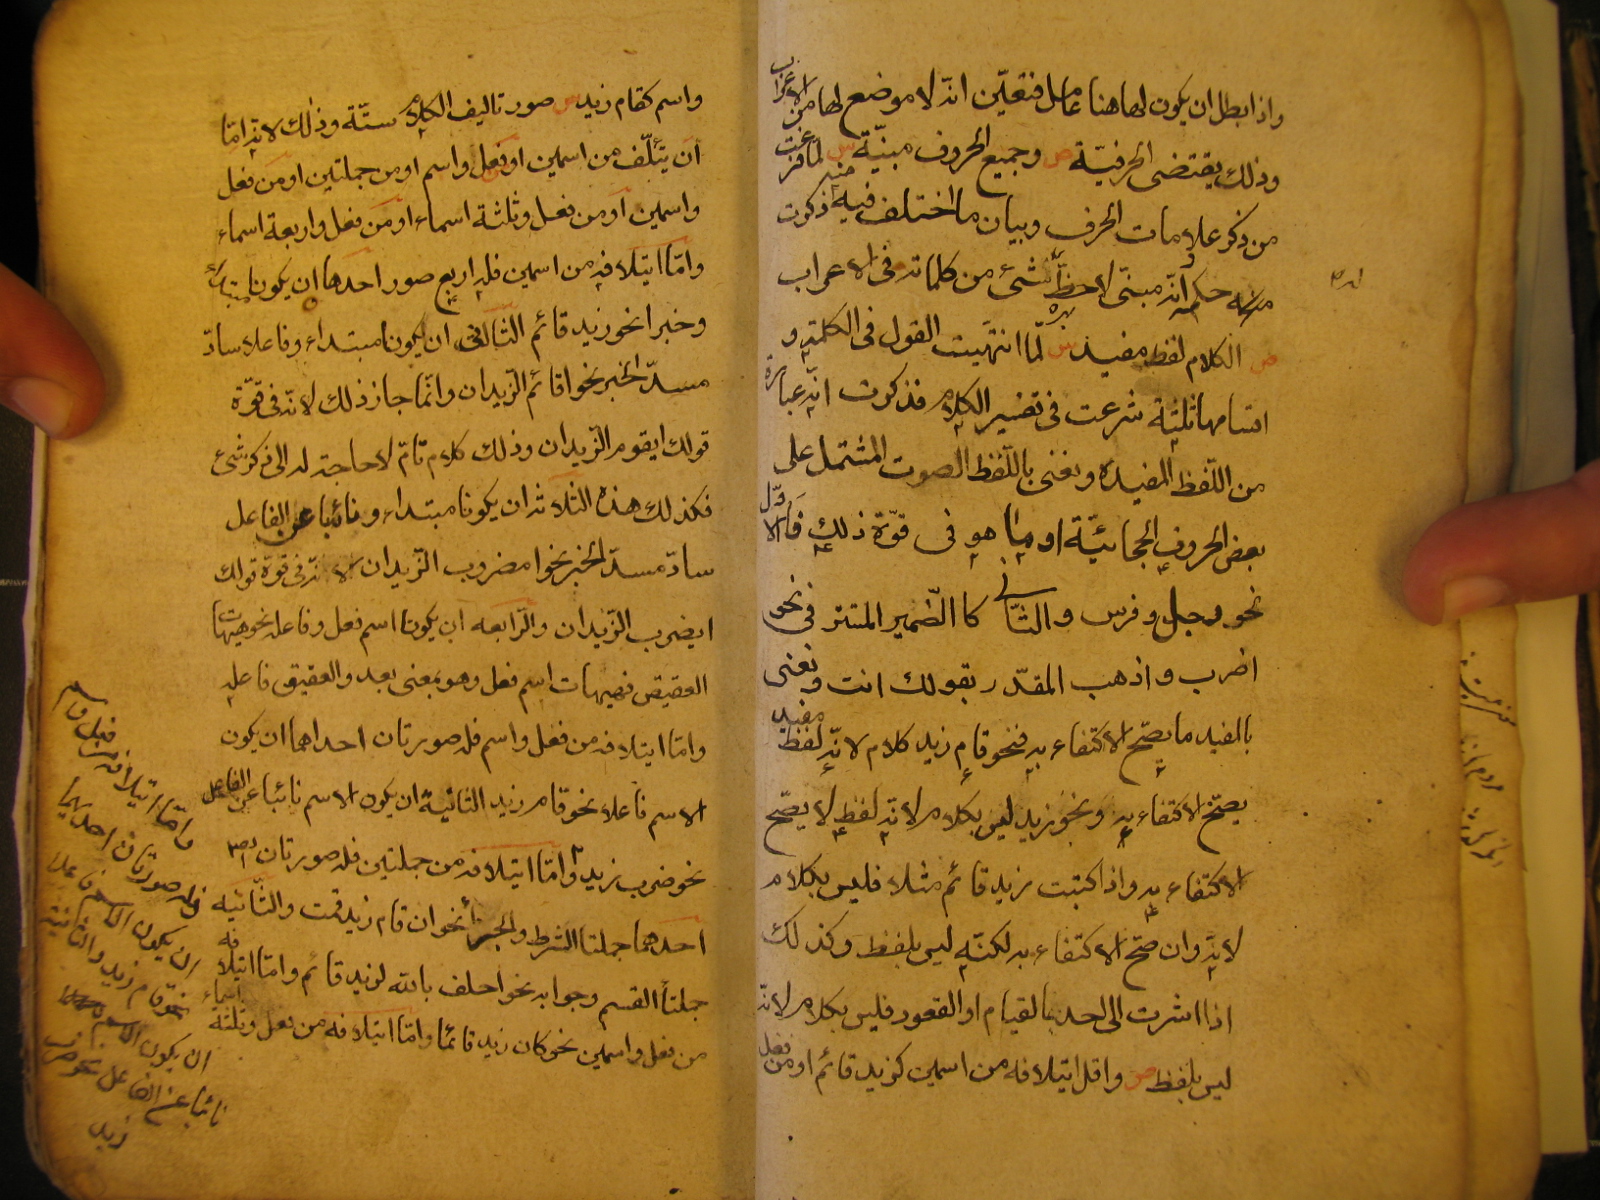 واذا بطل ان يكون لها هنا عامل فتعيّن انّه لا موضع لها من الاعراب
وذلك يقتضى الحرفيّة ص وجميع الحروف مبنيّة س لمّا فرغت
من ذكر علامات الحرف وبيان ما اختلف فيه منه ذكرت
حكمه انّه مبنى لا حظّ لشئ من كلماته فى الاعراب
ص الكلام لفظ مفيد س لمّا انتهيت القول فى الكلمة و
اقسامها ثلثة شرعت فى تفسير الكلام فذكرت انّه عبارة
من اللّفظ المفيد ونعنى باللّفظ الصوت المشتمل على
بعض الحروف الهجائيّة او ما هو فى قوّة ذلك فالاوّل
نحو رجل وفرس والثّانى كا الضّمير المستتر فى نحو
اضرب واذهب المقدّر بقولك انت ونعنى
بالمفيد ما يصحّ الاكتفاء به فنحو قام زيد كلام لانّه لفظ مفيد
يصحّ الاكتفاء به ونحو زيد ليس بكلام لانّه لفظ لا يصحّ
الاكتفاء به واذا كتبت زيد قائم مثلا فليس بكلام
لانّه وان صحّ الاكتفاء به لكنّه ليس بلفظ وكذلك
اذا اشرت الى احد بالقيام او القعود فليس بكلام لانّه
ليس بلفظ ص واقل ايتلافه من اسمين كزيد قائم او من فعل
واسم كقام زيد س صور تاليف الكلام ستّة وذلك لانّه امّا
ان يتألّف من اسمين او فعل واسم او من جملتين او من فعل
واسمين او من فعل وثلثة اسماء او من فعل واربعة اسماء
وامّا ايتلافه من اسمين فله اربع صور احدها ان يكونا مبتداء
وخبرا نحو زيد قائم الثانى ان يكونا مبتداء وفاعلا سادّ
مسدّ الخبر نحو اقائم الزّيدان وانّما جاز ذلك لانّه فى قوّة
قولك ايقوم الزّيدان وذلك كلام تامّ لا حاجة له الى ذكر شئ
فكذلك هذه الثلاثه ان يكونا مبتداء ونائبا عن الفاعل
سادّ مسدّ الخبر نحو امضروب الزّيدان لانّه فى قوّة قولك
ايضرب الزّيدان والرّابعه ان يكونا اسم فعل وفاعله نحو هيهات
العقيق فهيهات اسم فعل وهو بمعنى بعد والعقيق فاعله
وامّا ايتلافه من فعل واسم فله صورتان احداهما ان يكون
الاسم فاعلا نحو قام زيد الثانية ان يكون الاسم نائبا عن الفاعل
نحو ضرب زيد وامّا ايتلافه من جملتين فله صورتان
احدهما جملتا الشرط والجزاء نحو ان قام زيد قمت والثّانيه
جملتا القسم وجوابه نحو احلف بالله لزيد قائم وامّا ايتلافه
من فعل واسمين نحو كان زيد قائما وامّا ايتلافه من فعل وثلثة اسماء
وامّا ايتلافه من فعل واسم
فله صورتان احديهما
ان يكون الاسم فاعلا
نحو قام زيد والثانية
ان يكون الاسم
نائبا عن الفاعل نحو ضرب
زيد